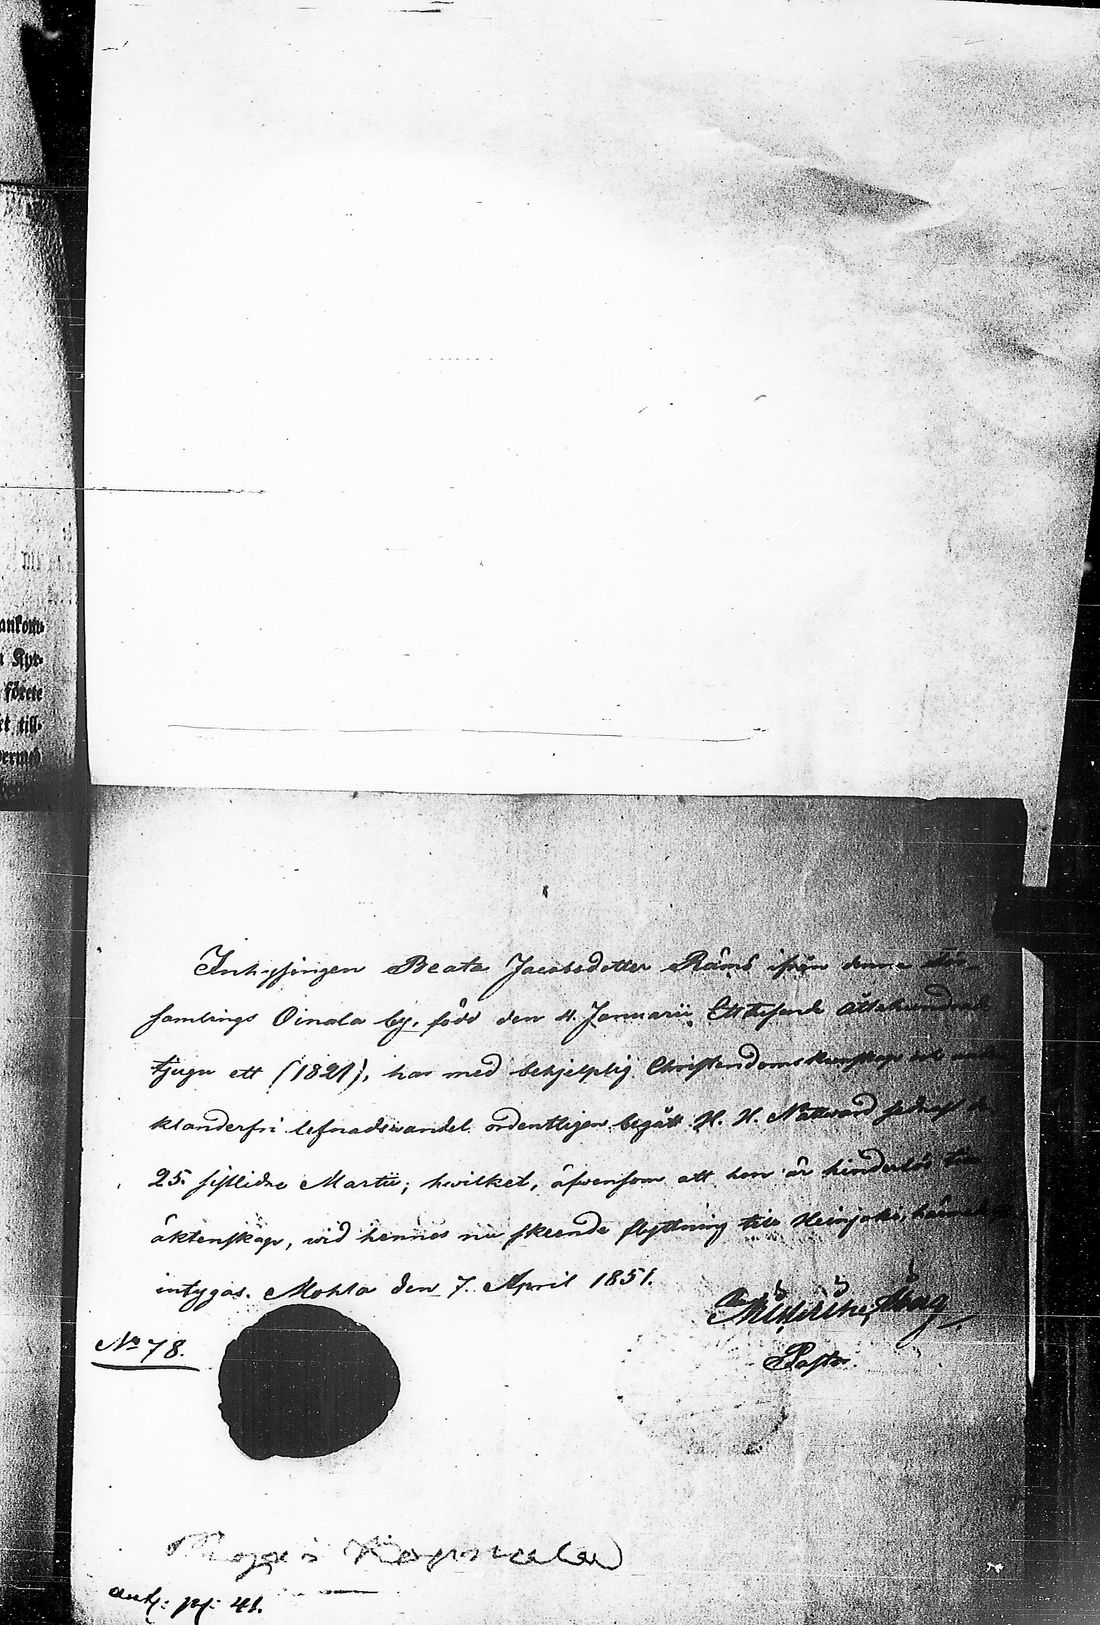 ankom-
n Kyr-
förete
et till-
dermed
Inhysingen Beata Jacobsdotter Rämö ifrån denna För-
samlings Oinala by, född den 4. Januarii Ett tusende åttahundrade
tjugu ett (1821), har med behjelplig Christendomskunskap och
klanderfri lefnadswandel ordentligen begått H. H. Nattward sednast d.
25. sistlidne Martii; hwilket, äfvensom att hon är hinderlös till
äktenskap, wid hennes nu skeende flyttning till Heinjoki, härmed
intygas. Mohla den 7. April 1851.
Pastor.
No 78.
ant: p: 41.